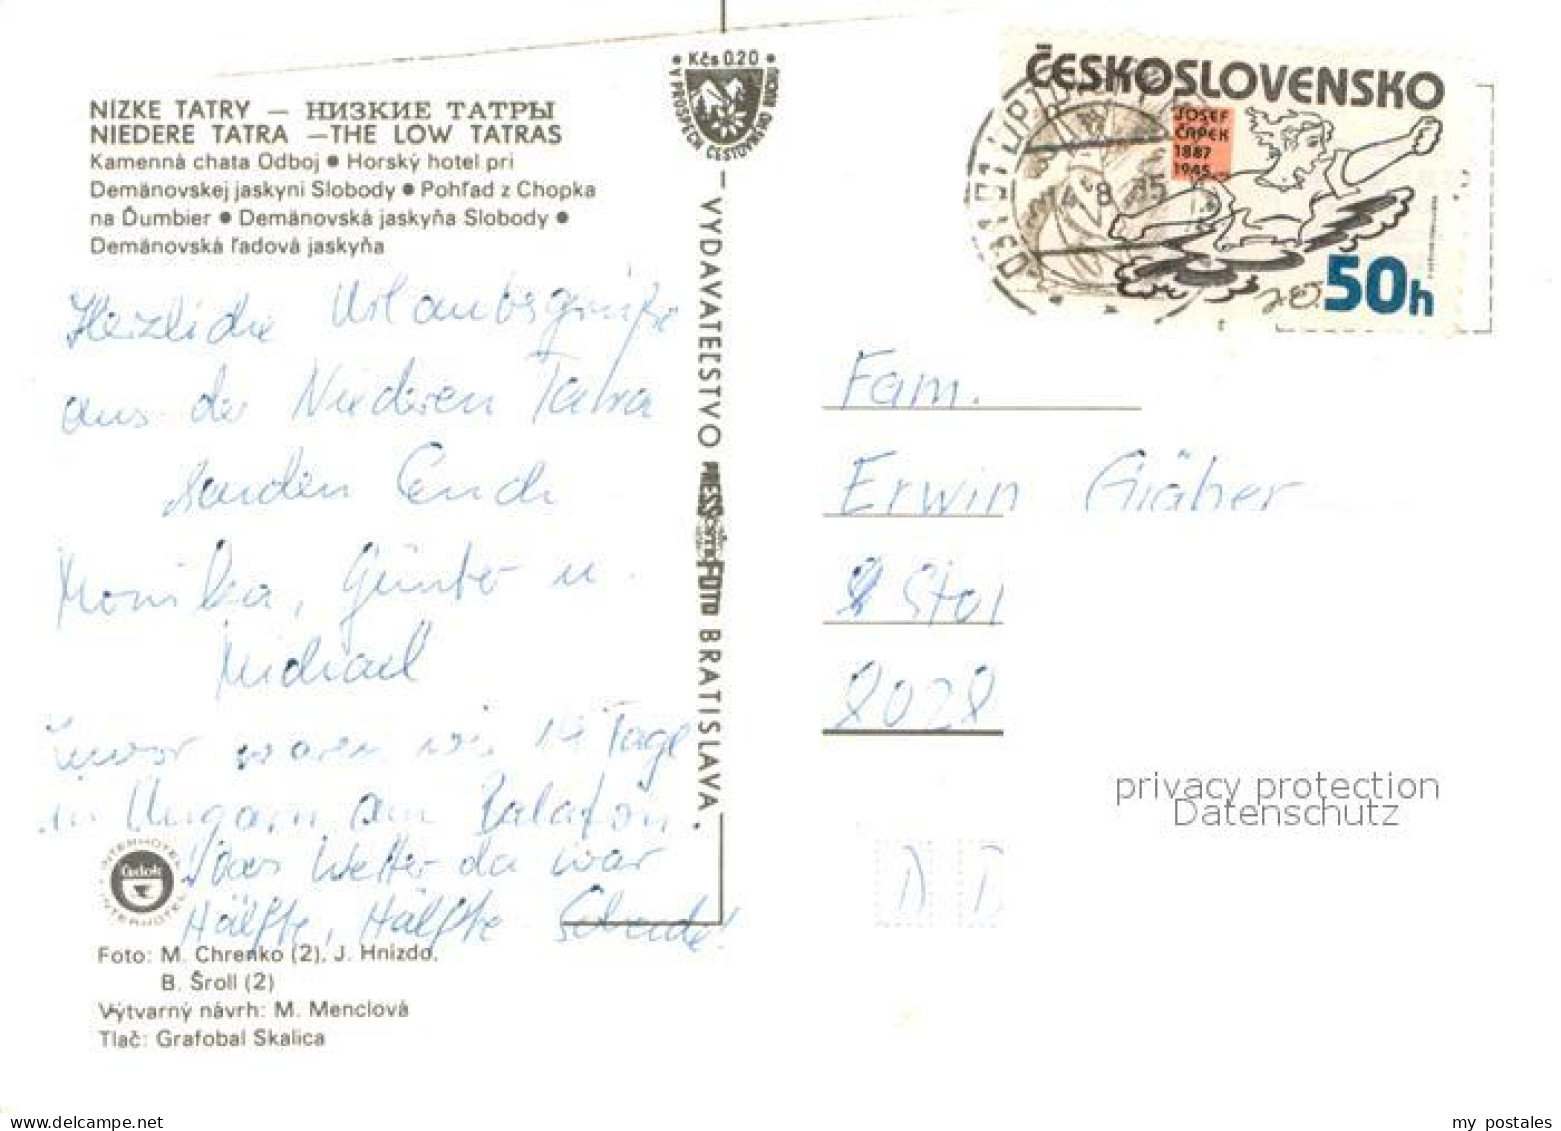 • Kčs 0.20 •
V PROSPECH CESTOVNÉHO RUCHU
NÍZKE TATRY — НИЗКИЕ ТАТРЫ
NIEDERE TATRA —THE LOW TATRAS
Kamenná chata Odboj ● Horský hotel pri
Demänovskej jaskyni Slobody ● Pohľad z Chopka
na Ďumbier ● Demänovská jaskyňa Slobody ●
Demänovská ľadová jaskyňa
Herzliche Urlaubsgrüße
aus der Niederen Tatra
senden Euch
Monika, Günter u.
Michael
Zuvor waren wir 14 Tage
in Ungarn am Balaton.
Das Wetter da war
Hälfte, Hälfte. Schade!
INTERHOTEL
Čedok
INTERHOTEL
Foto: M. Chrenko (2), J. Hnízdo,
B. Šroll (2)
Výtvarný návrh: M. Menclová
Tlač: Grafobal Skalica
— VYDAVATEĽSTVO PRESSFOTO BRATISLAVA
ČESKOSLOVENSKO
JOSEF
ČAPEK
1887
1945
50h
031 01 LIPTO
14.8.85
Fam.
Erwin Gräber
Stol
8028
D D
privacy protection
Datenschutz
my postales